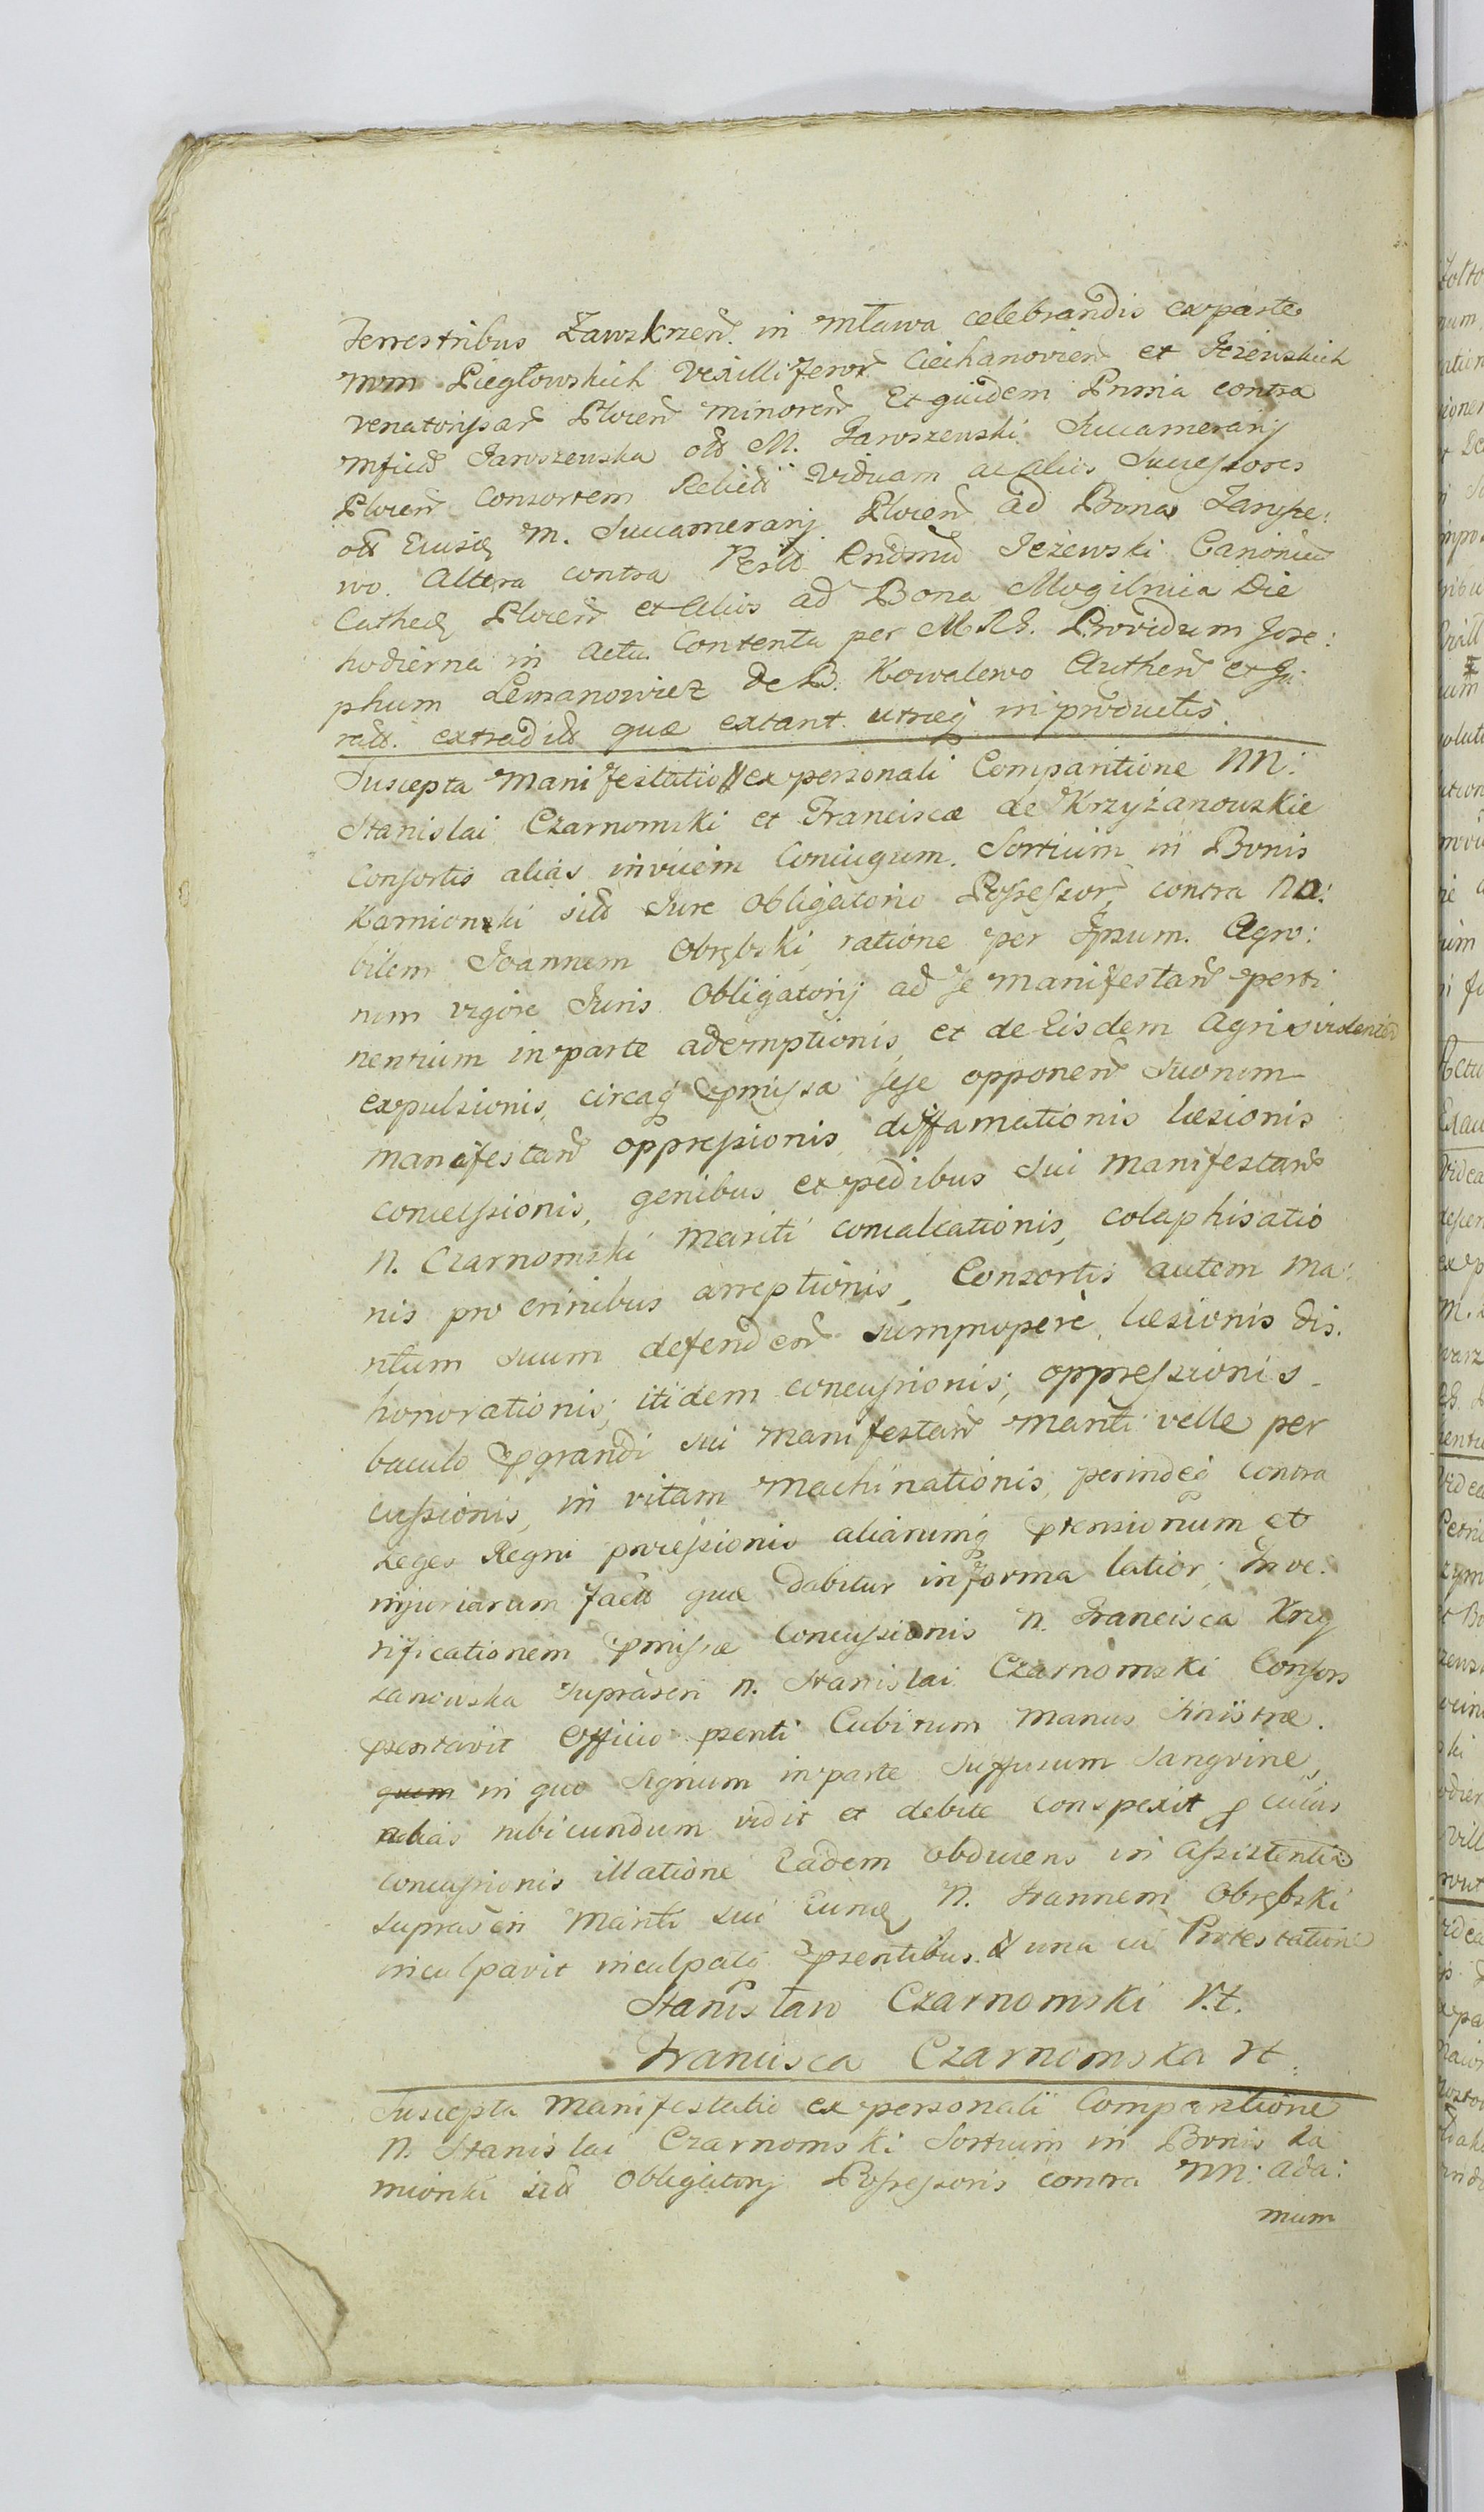 Terrestribus Zawskrzen. in Mława celebrandis ex parte
MM Piegłowskich Vexilliferor Ciechanovien et Jeżewskich
Venatoriisar Plocen minoren Et quidem Prima contra
Mficā Jaroszewska olī M. Jaroszewski Succamerarij
Plocen Consortem Relictā Viduam ac alios Successores
olī Eiusdē M. Succamerarij Plocen ad Bona
wo. Altera contra Perill Rndmū Jeżewski Canonicū
Cathed Plocen et Alios ad Bona Mogilnica Die
hodierna in Actu Contenta per M R S. Providum Jose:
phum Lemanowicz de B. Kowalewo Authen et Ju
ratt. extradit quæ extant utraq in productis.
Suscepta Manifestatio ex personali Comparitione NN:
Stanislai Czarnomski et Franciscæ de Krzyżanowskie
Consortis alias invicem Coniugum. Sortium in Bonis
Kamionski sit Jure obligatorio Possessor, contra No:
bilem Joannem Obrębski, ratione per Ipsum. Agro:
rum vigore Juris Obligatorij ad se manifestan perti
nentium in parte ademptionis, et de Eisdem Agris violentæ
expulsionis, circaq pmissa sese opponen Suorum
manifestan oppressionis, diffamationis læsionis
concussionis, genibus et pedibus sui manifestan
N. Czarnomski Mariti conculcationis, colaphisatio
nis pro crinibus arreptionis, Consortis autem Ma:
ritum suum defenden summopere, læsionis dis.
honorationis; itidem concussionis; oppressionis
baculo pgrandi sui manifestan Mariti velle per
cussionis, in vitam machinationis, perindeq contra
Leges Regni processionis aliarumq ptensionum et
injuriarum fact quæ dabitur in forma latior; In ve:
rificationem pmissæ Concussionis N. Francisca Krzy
żanowska supra scri N. Stanislai Czarnomski Consors
psentavit Officio psenti Cubitum Manus Sinistræ.
quem in quo Signum in parte suffusum Sangvine,
alias rubicundum vidit et debite conspexit p cuius
concussionis illatione Eadem obducens in Assistentia
suprascri Mariti sui Eundē N. Joannem Obrębski
inculpavit inculpatq psentibus. & una cū Protestatione
Stanisław Czarnomski V.t.
Francisca Czarnomska Vt.
Suscepta Manifestatio ex personali Comparitione
N. Stanislai Czarnomski Sortium in Bonis Ka
mionki sit obligatorij Possessoris contra NN: Ada:
mum